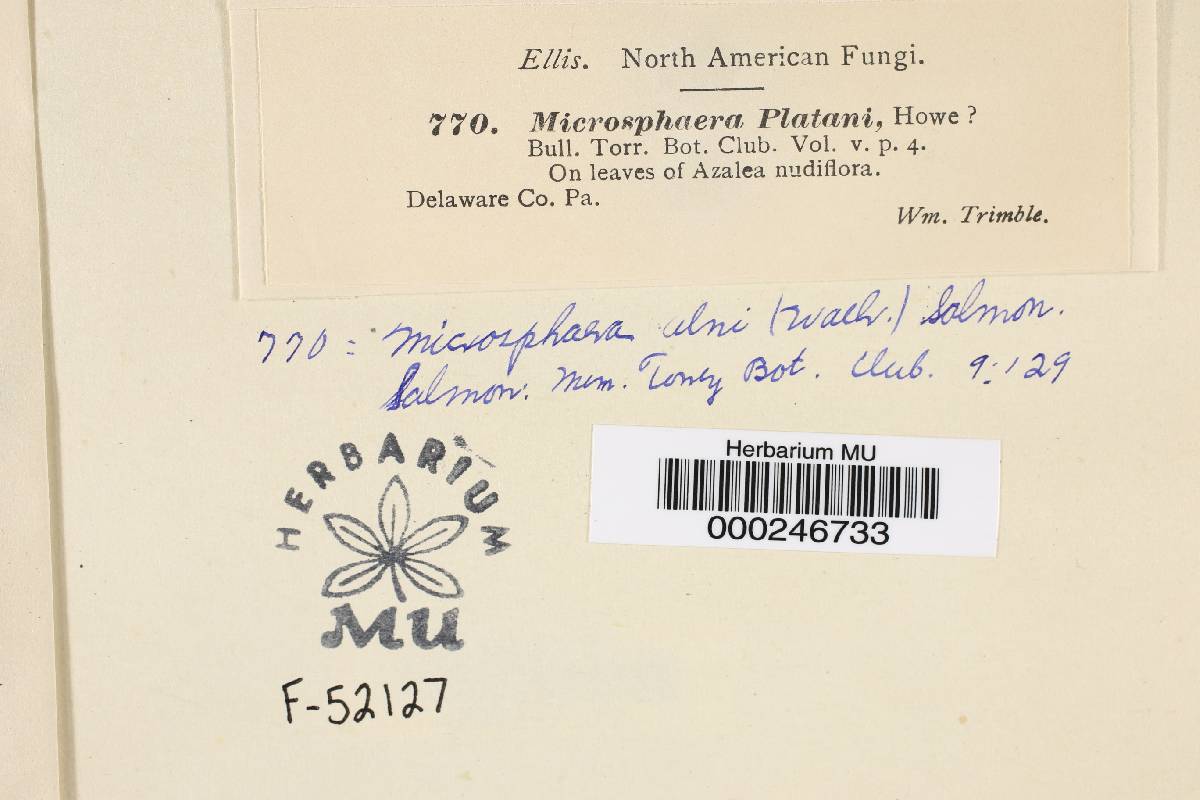 Ellis. North American Fungi.
770. Microsphaera Platani, Howe ?
Bull. Torr. Bot. Club. Vol. v. p. 4.
On leaves of Azalea nudiflora.
Delaware Co. Pa.
Wm. Trimble.
770 = Microsphaera alni (Wallr.) Salmon.
Salmon: Mem. Torrey Bot. Club. 9:129
HERBARIUM
MU
Herbarium MU
000246733
F-52127